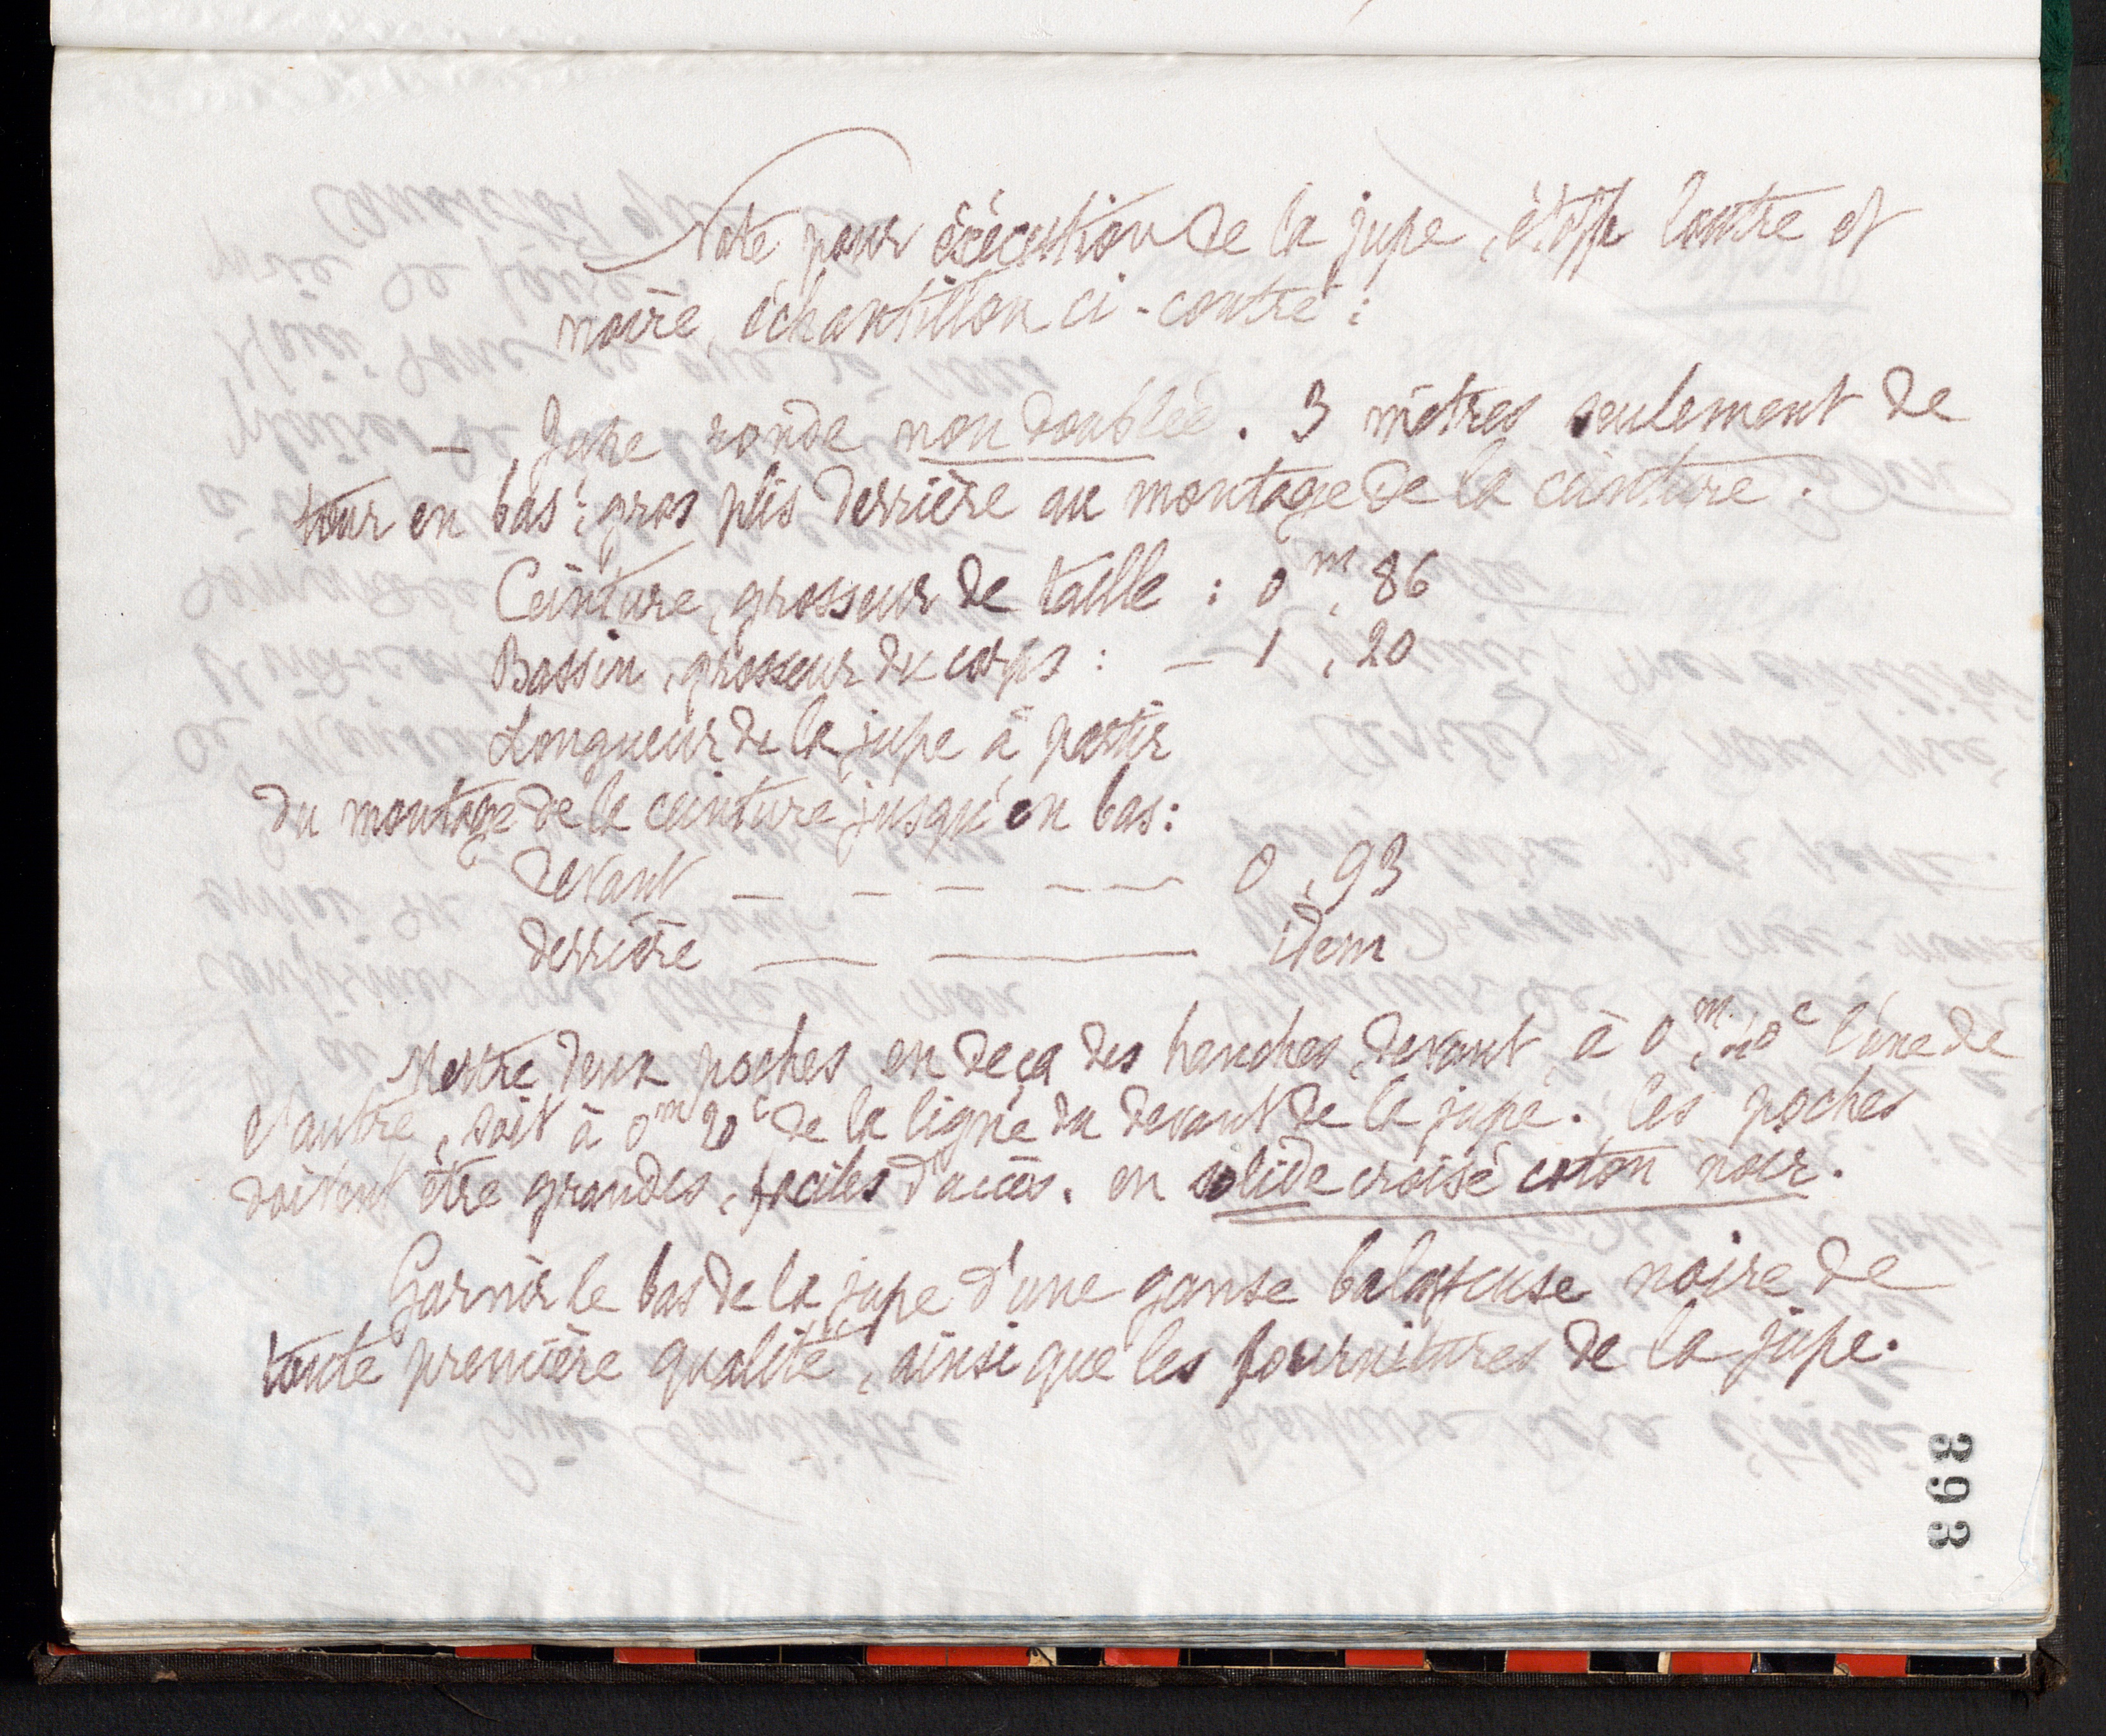 Note pour exécution de la jupe, étoffe loutre et
noire, échantillon ci-contre :
— Jupe ronde non doublée. 3 mètres seulement de
tour en bas ; gros plis derrière au montage de la ceinture.
Ceinture, grosseur de taille : 0 m, 86
Bassin, grosseur du corps : — 1, 20
Longueur de la jupe à partir
du montage de la ceinture jusqu'en bas :
devant — — — — — 0, 93
derrière — — idem
Mettre deux poches en deça des hanches, devant, à 0 m, 40 c l'une de
l'autre, soit à 0 m 20 c de la ligne du devant de la jupe. Les poches
doivent être grandes, faciles d'accès. en solide croisé coton noir.
Garnir le bas de la jupe d'une ganse balayeuse noire de
toute première qualité, ainsi que les fournitures de la jupe.
393